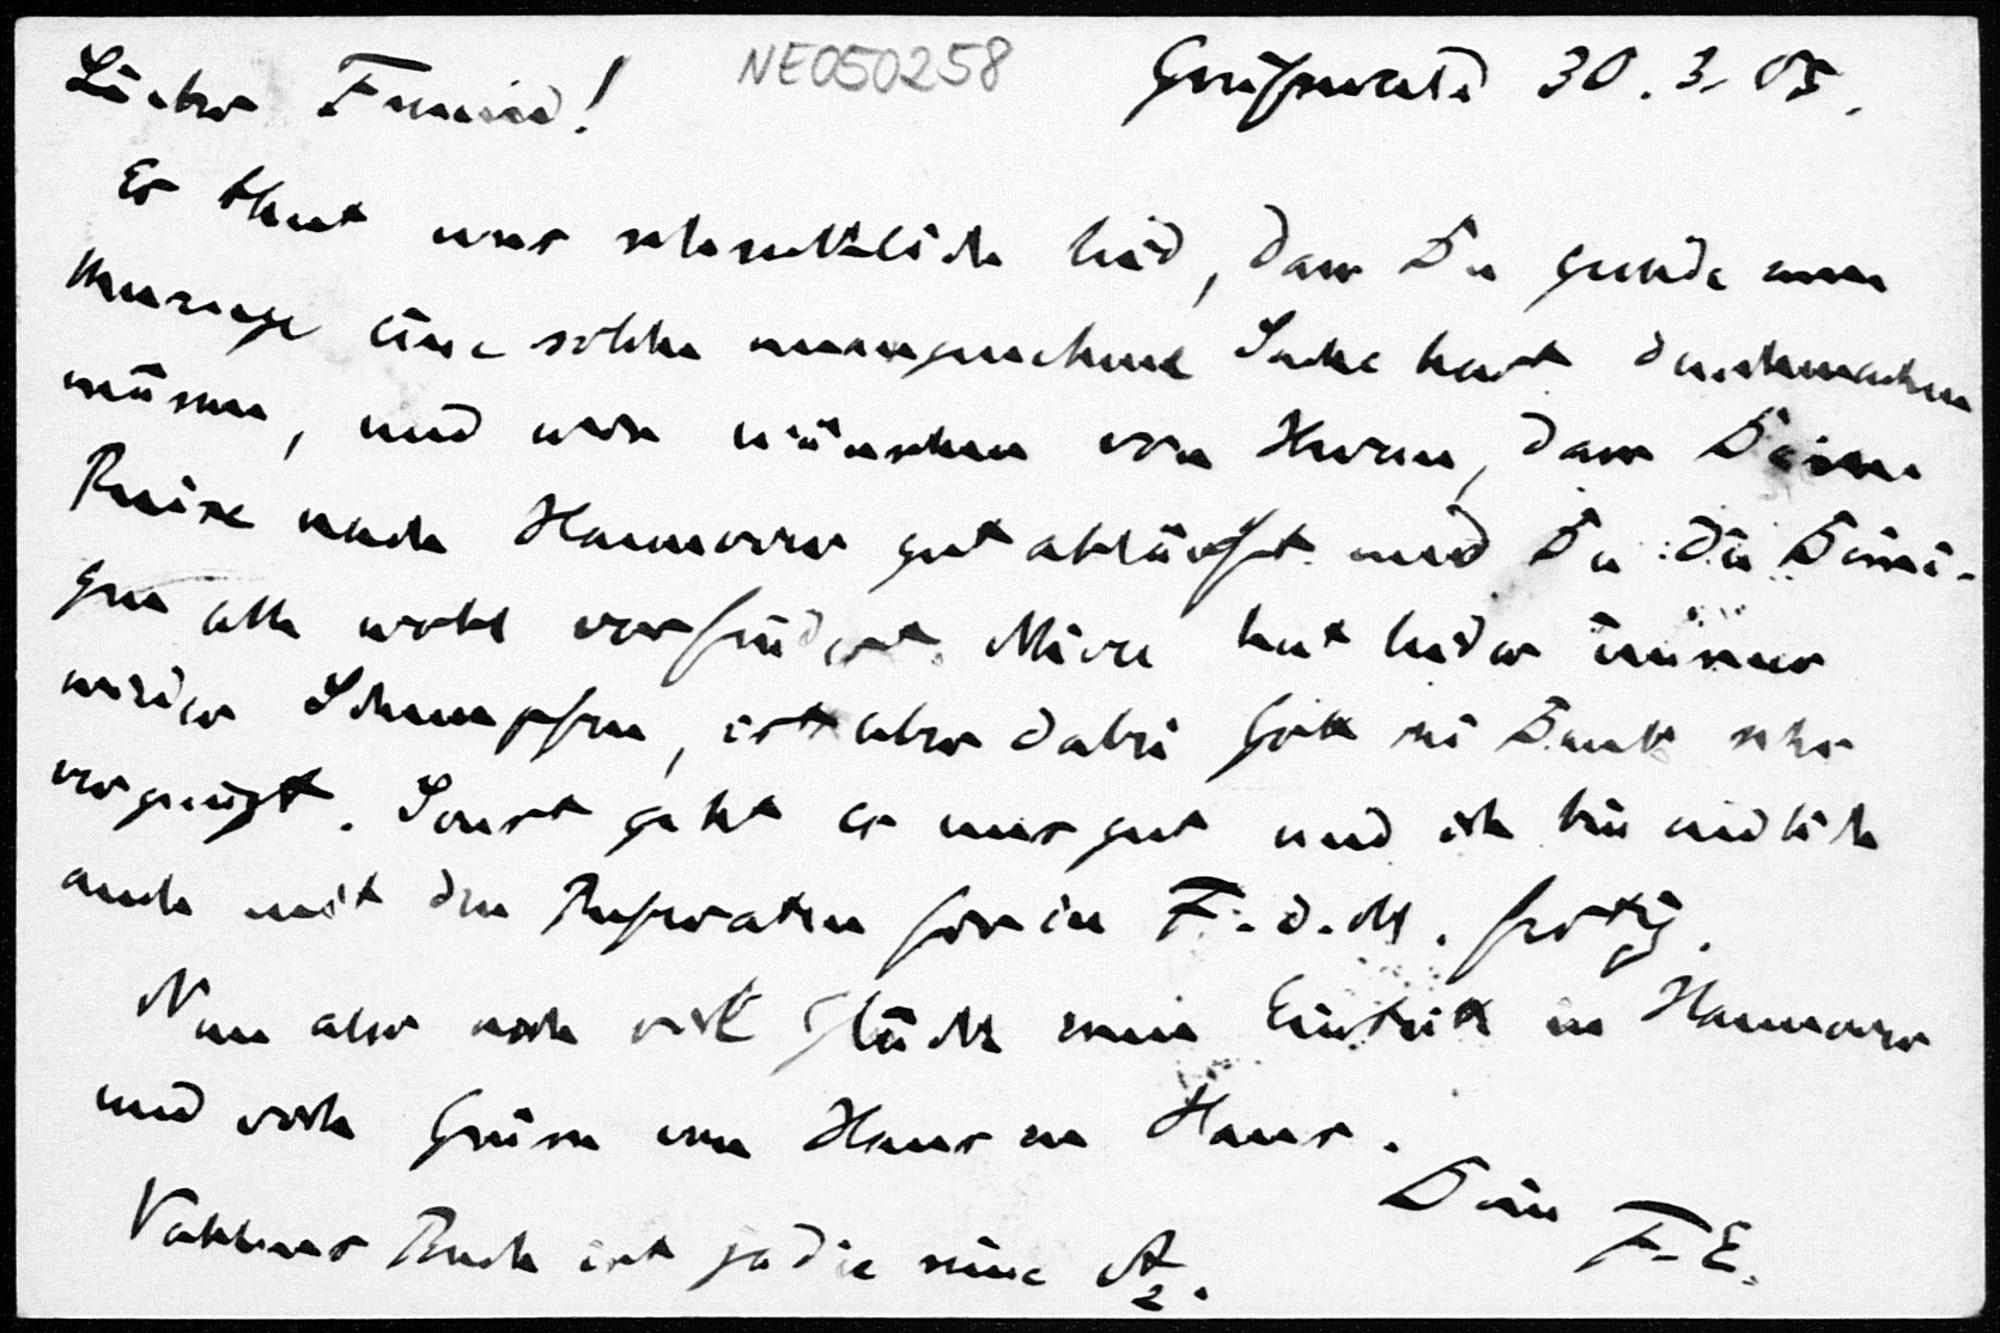 NE050258
Greifswald 30. 3. 05.
Lieber Freund!
Es thut uns schrecklich leid, dass Du gerade
eine solche unangenehme Sache hast durchmachen
müssen, und wir wünschen von Herzen, dass Deine
Reise nach Hannover gut abläuft und Du die Deini-
gen alle wohl vorfindest. hat leider immer
wieder Schnupfen, ist aber dabei Gott sei Dank sehr
vergnügt. Sonst geht es uns gut und ich bin endlich
auch mit den Referaten für die F. d. M. fertig.
Nun also noch viel Glück zum Eintritt in Hannover
und viele Grüsse von Haus zu Haus.
Dein F. E.
Vahlens Buch ist ja die reine